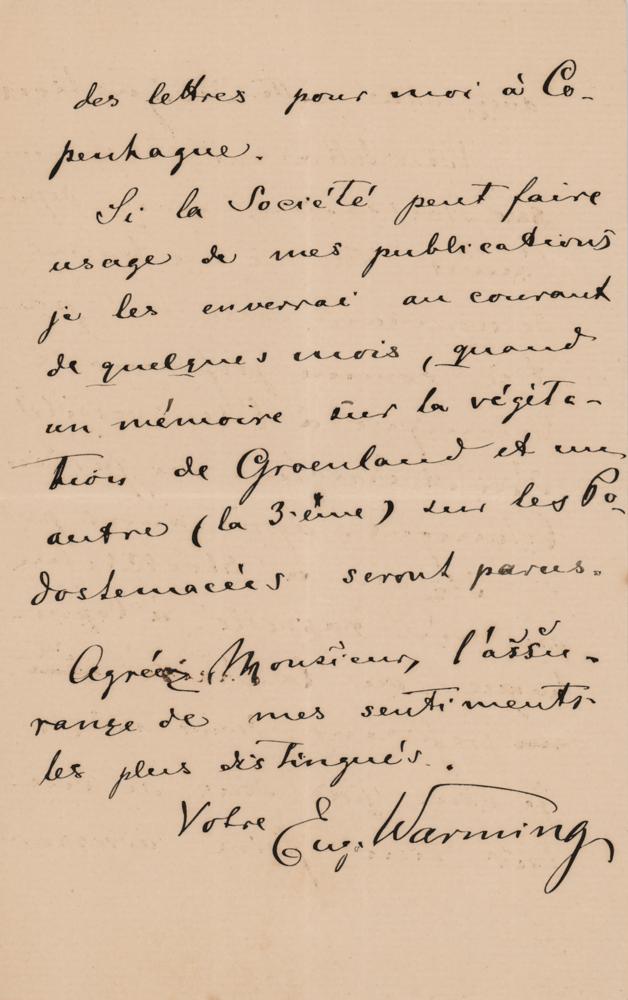 des lettres pour moi à Co-
penhague.
Si la Société peut faire
usage de mes publications
je les enverrai au courant
de quelques mois, quand
un mémoire sur la végéta-
tion de Groenland et un
autre (la 3-ème) sur les Po-
dostemacées seront parus.
Agréez Monsieur, l'assu-
range de mes sentiments
les plus distingués.
Votre Eug. Warming